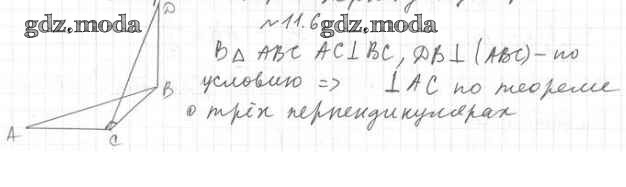 D
№11.6
gdz.moda gdz.moda
В △ ABC AC⊥BC, DB⊥(ABC) - по
условию => ⊥AC по теореме
о трёх перпендикулярах
B
A
C